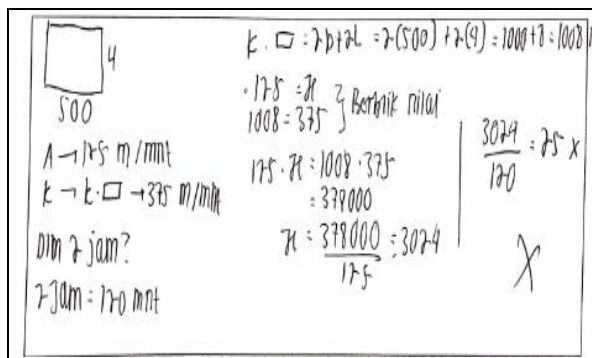 4
500
A → 125 m/mnt
K → K.□ → 375 m/mnt
Dlm 2 jam?
2 jam = 120 mnt
K.□ = 2p+2L = 2(500) + 2(4) = 1000+8 = 1008
125 = x
1008 = 375 } Berbalik nilai
125 . x = 1008 . 375
= 378000
x = 378000 / 125 = 3024
3024 / 120 = 25 x
X